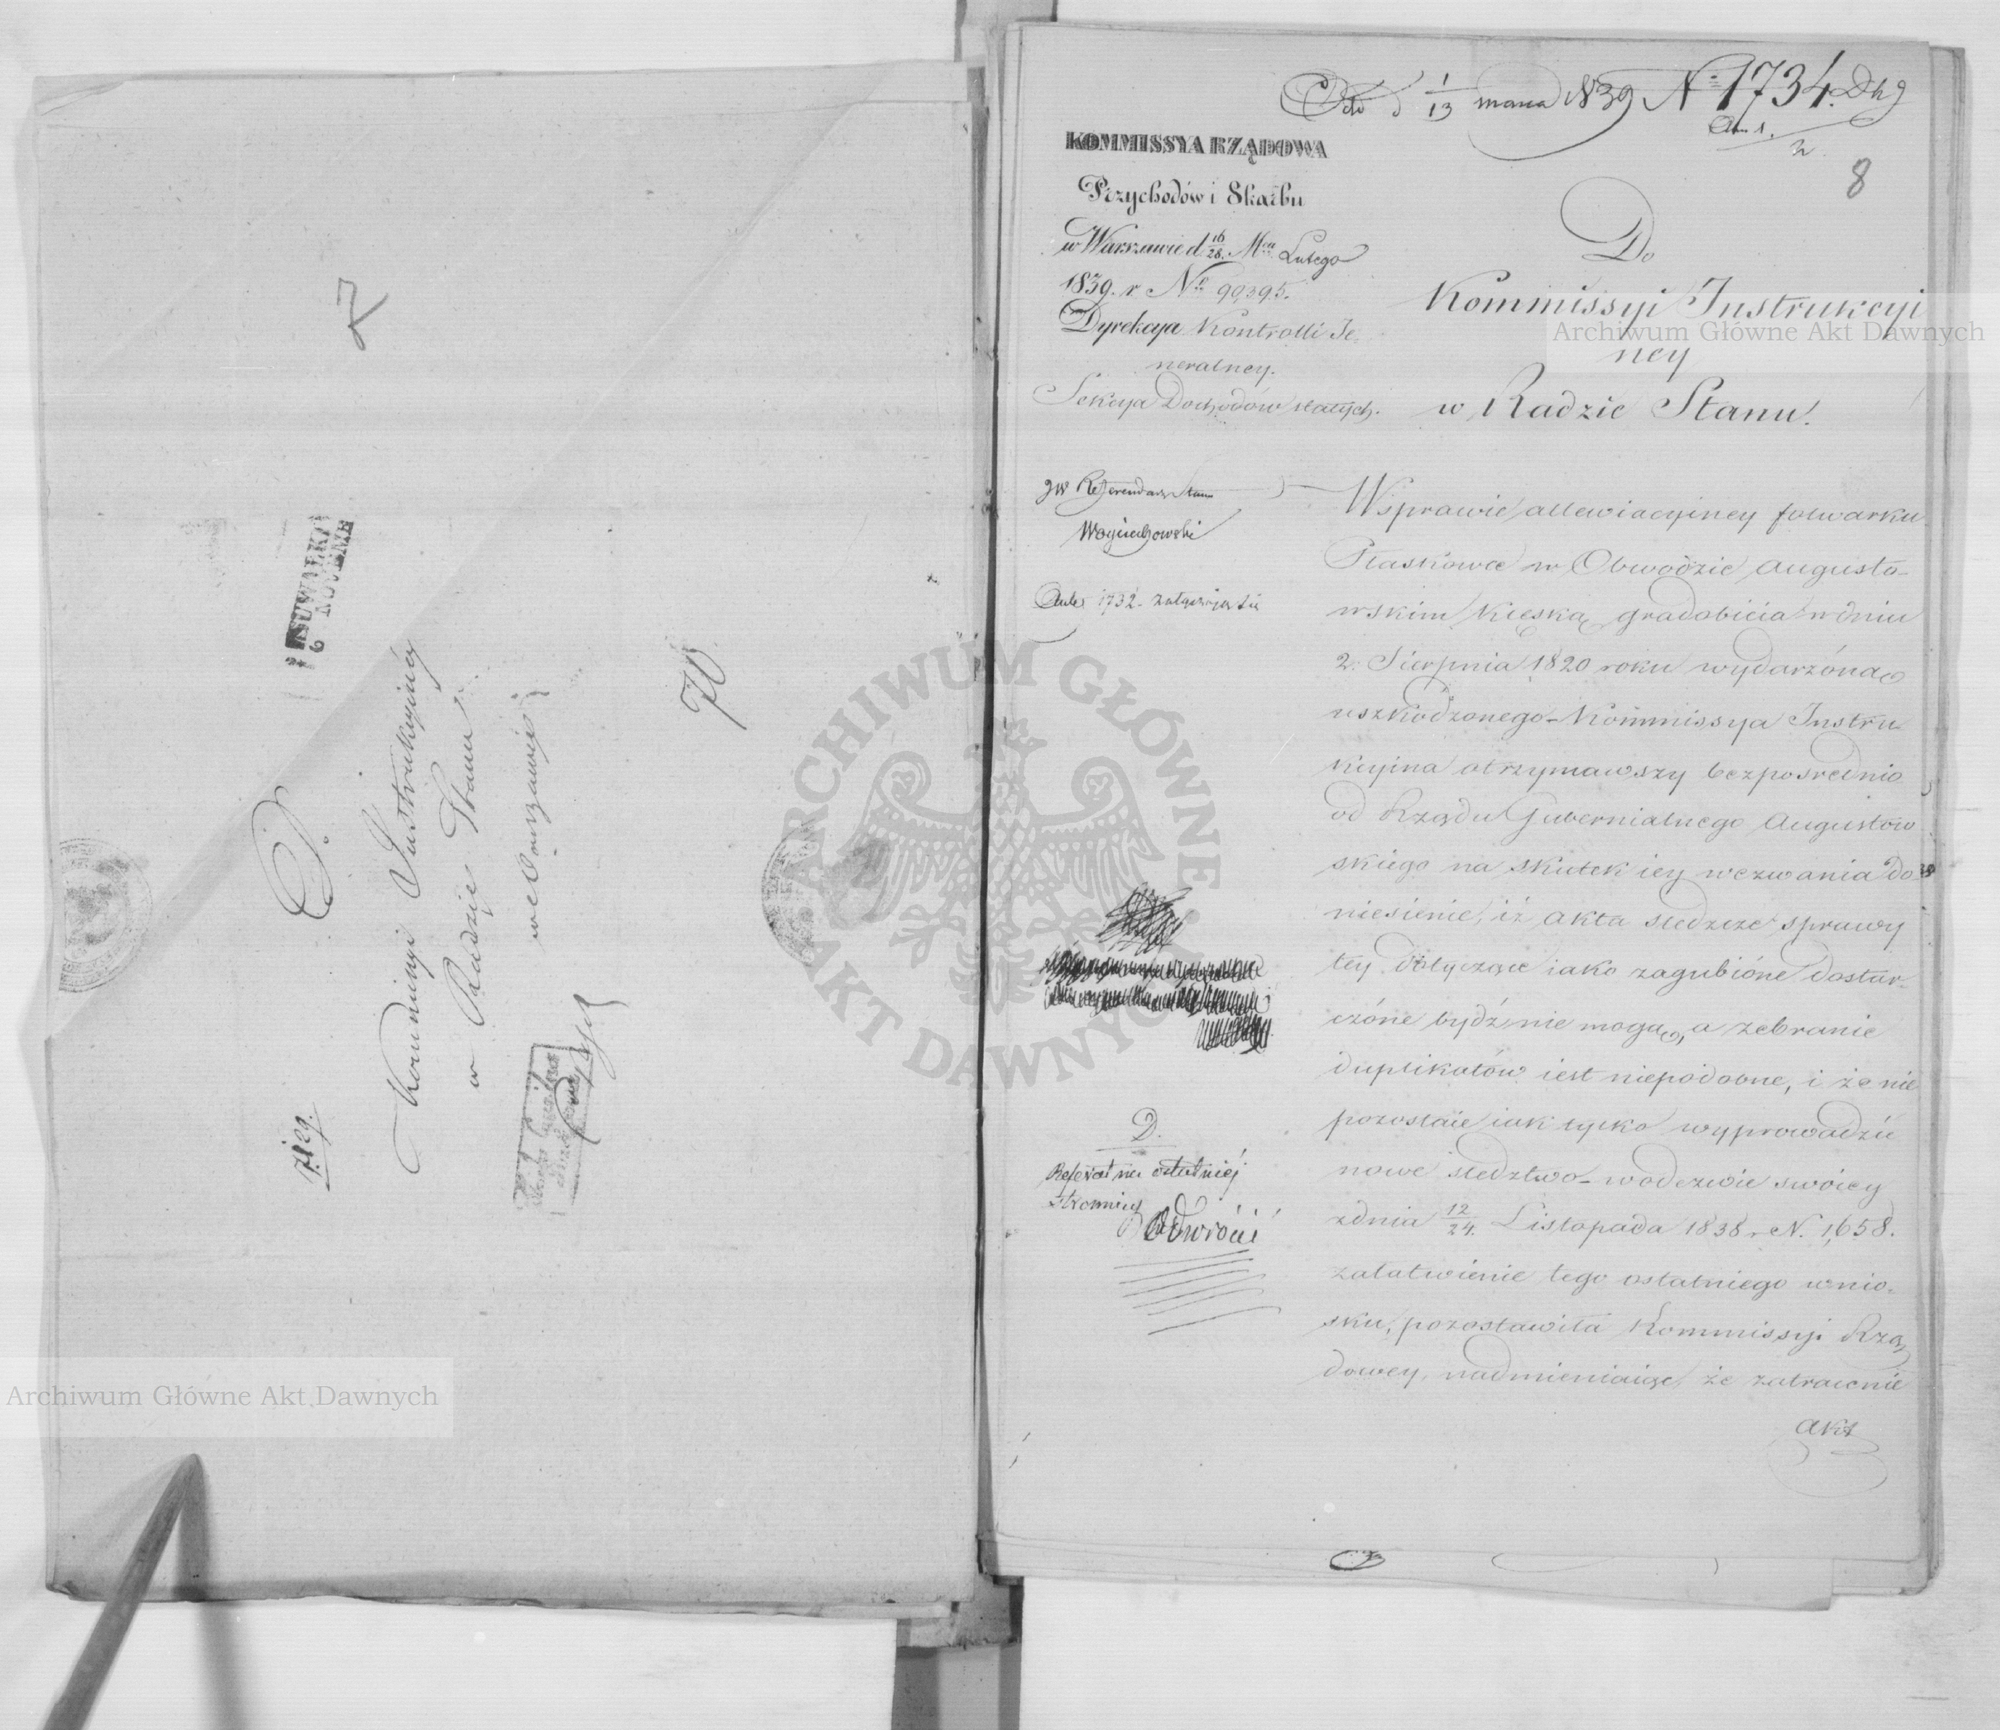 7
SUWAŁKI
D.
Kommissyi Instrukcyiney
w Radzie Stanu
w Warszawie
odt 1/13 marca 1839 N 1734.
8
KOMMISSYA RZĄDOWA
Przychodów i Skarbu
w Warszawie d. 16/28. Mca Lutego
1839. r. No 99395.
Dyrekcya Kontrolli Je-
neralney.
Sekcya Dochodów stałych.
Do
Kommissyi Instrukcyi
ney
w Radzie Stanu.
JW Referendarz Stanu
Woyciechowski
1732. załączyć
W sprawie allewiacyiney folwarku
Ptaskowce w Obwodzie Augusto-
wskim klęską gradobicia w dniu
2. Sierpnia 1820 roku wydarzoną
uszkodzonego - Kommissya Instru-
kcyina otrzymawszy bezpośrednio
od Rządu Gubernialnego Augustow
skiego na skutek iey wezwania do-
niesienie, iż akta śledcze sprawy
tey dotyczące iako zagubione dostar-
czone bydź nie mogą, a zebranie
duplikatów iest niepodobne, i że nie
pozostaie iak tylko wyprowadzić
nowe śledztwo - w odezwie swoiey
z dnia 12/24. Listopada 1838 r N. 1,658.
załatwienie tego ostatniego wnio-
sku, pozostawiła Kommissyi Rzą
dowey, nadmieniaiąc, że zatracenie
akt
D.
Referat na ostatniéj
stronnicy
Odwrócić
Archiwum Główne Akt Dawnych
ARCHIWUM GŁÓWNE AKT DAWNYCH
Archiwum Główne Akt Dawnych